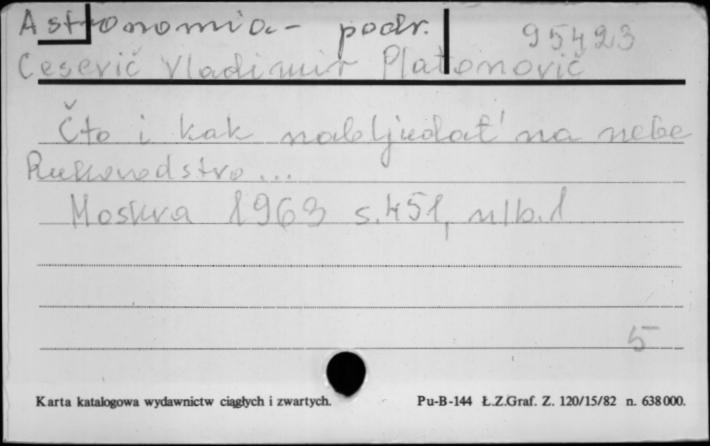 Astronomia - podr. 95423
Cesevič Vladimir Platonovič
Čto i kak nabljudat' na nebe
Rukovodstvo...
Moskva 1963 s. 451, nlb. 1
5
Karta katalogowa wydawnictw ciągłych i zwartych. Pu-B-144 Ł.Z.Graf. Z. 120/15/82 n. 638000.